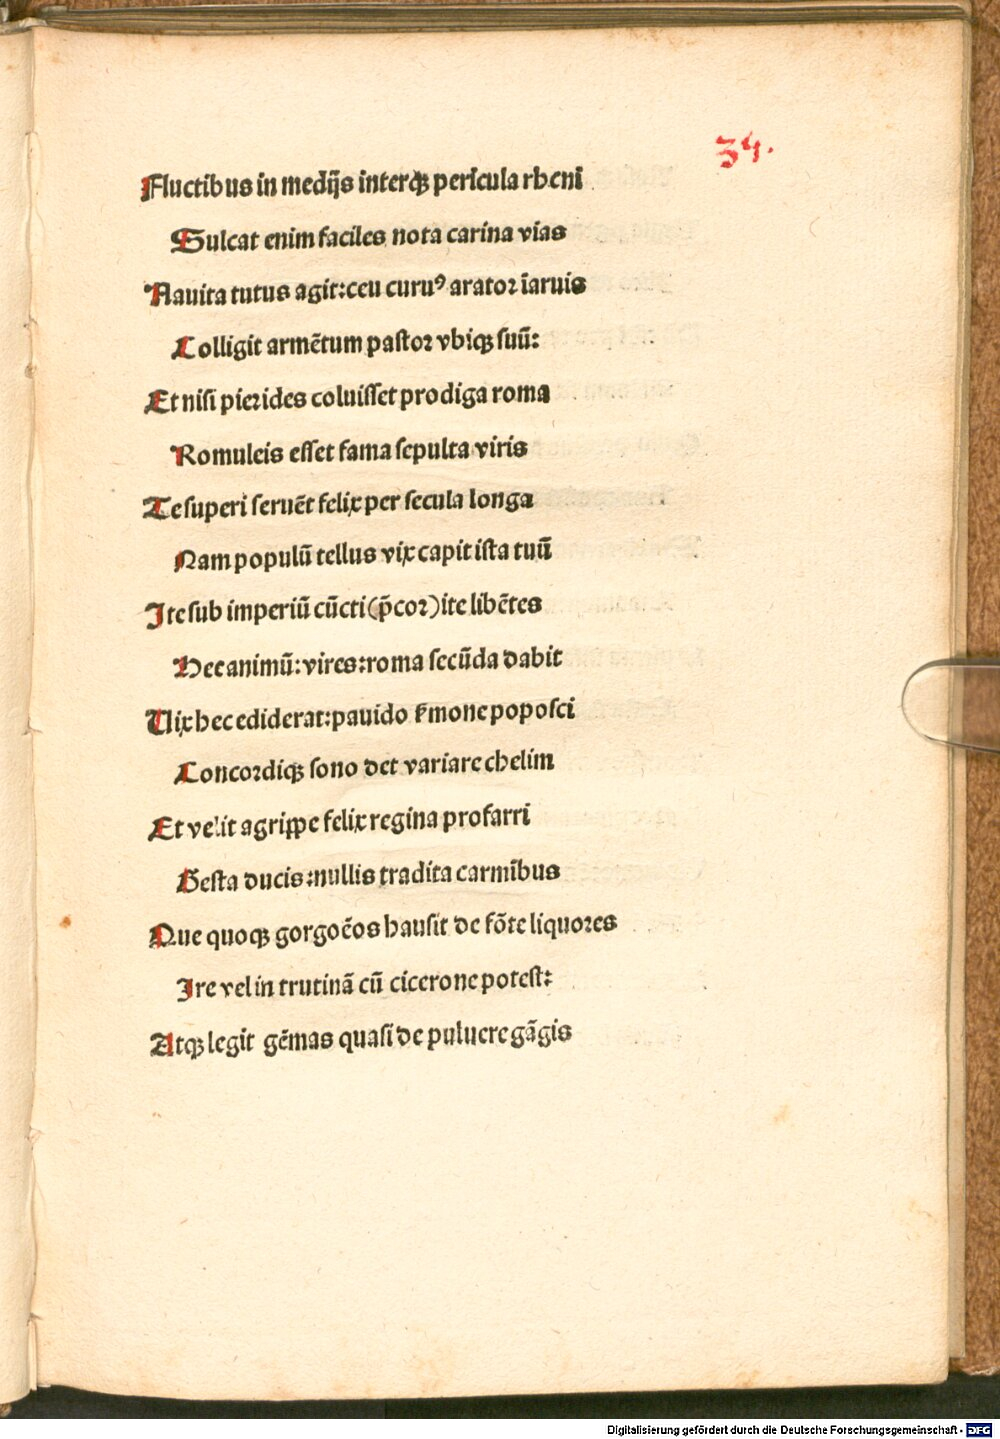 34.
Fluctibus in medijs interqꝫ pericula rheni
Sulcat enim faciles nota carina vias
Nauita tutus agit:ceu curuꝰ arator ĩaruis
Colligit armẽtum pastor vbiqꝫ suũ:
Et nisi pierides coluisset prodiga roma
Romuleis esset fama sepulta viris
Te superi seruẽt felix per secula longa
Nam populũ tellus vix capit ista tuũ
Ite sub imperiũ cũcti (p̃cor) ite libẽtes
Hec animũ:vires:roma secũda dabit
Uix hec ediderat:pauido s̃mone poposci
Concordiqꝫ sono det variare chelim
Et velit agrippe felix regina profarri
Gesta ducis:nullis tradita carmĩbus
Que quoqꝫ gorgoẽos hausit de fõte liquores
Ire vel in trutinã cũ cicerone potest:
Atqꝫ legit gẽmas quasi de puluere gãgis
Digitalisierung gefördert durch die Deutsche Forschungsgemeinschaft - DFG